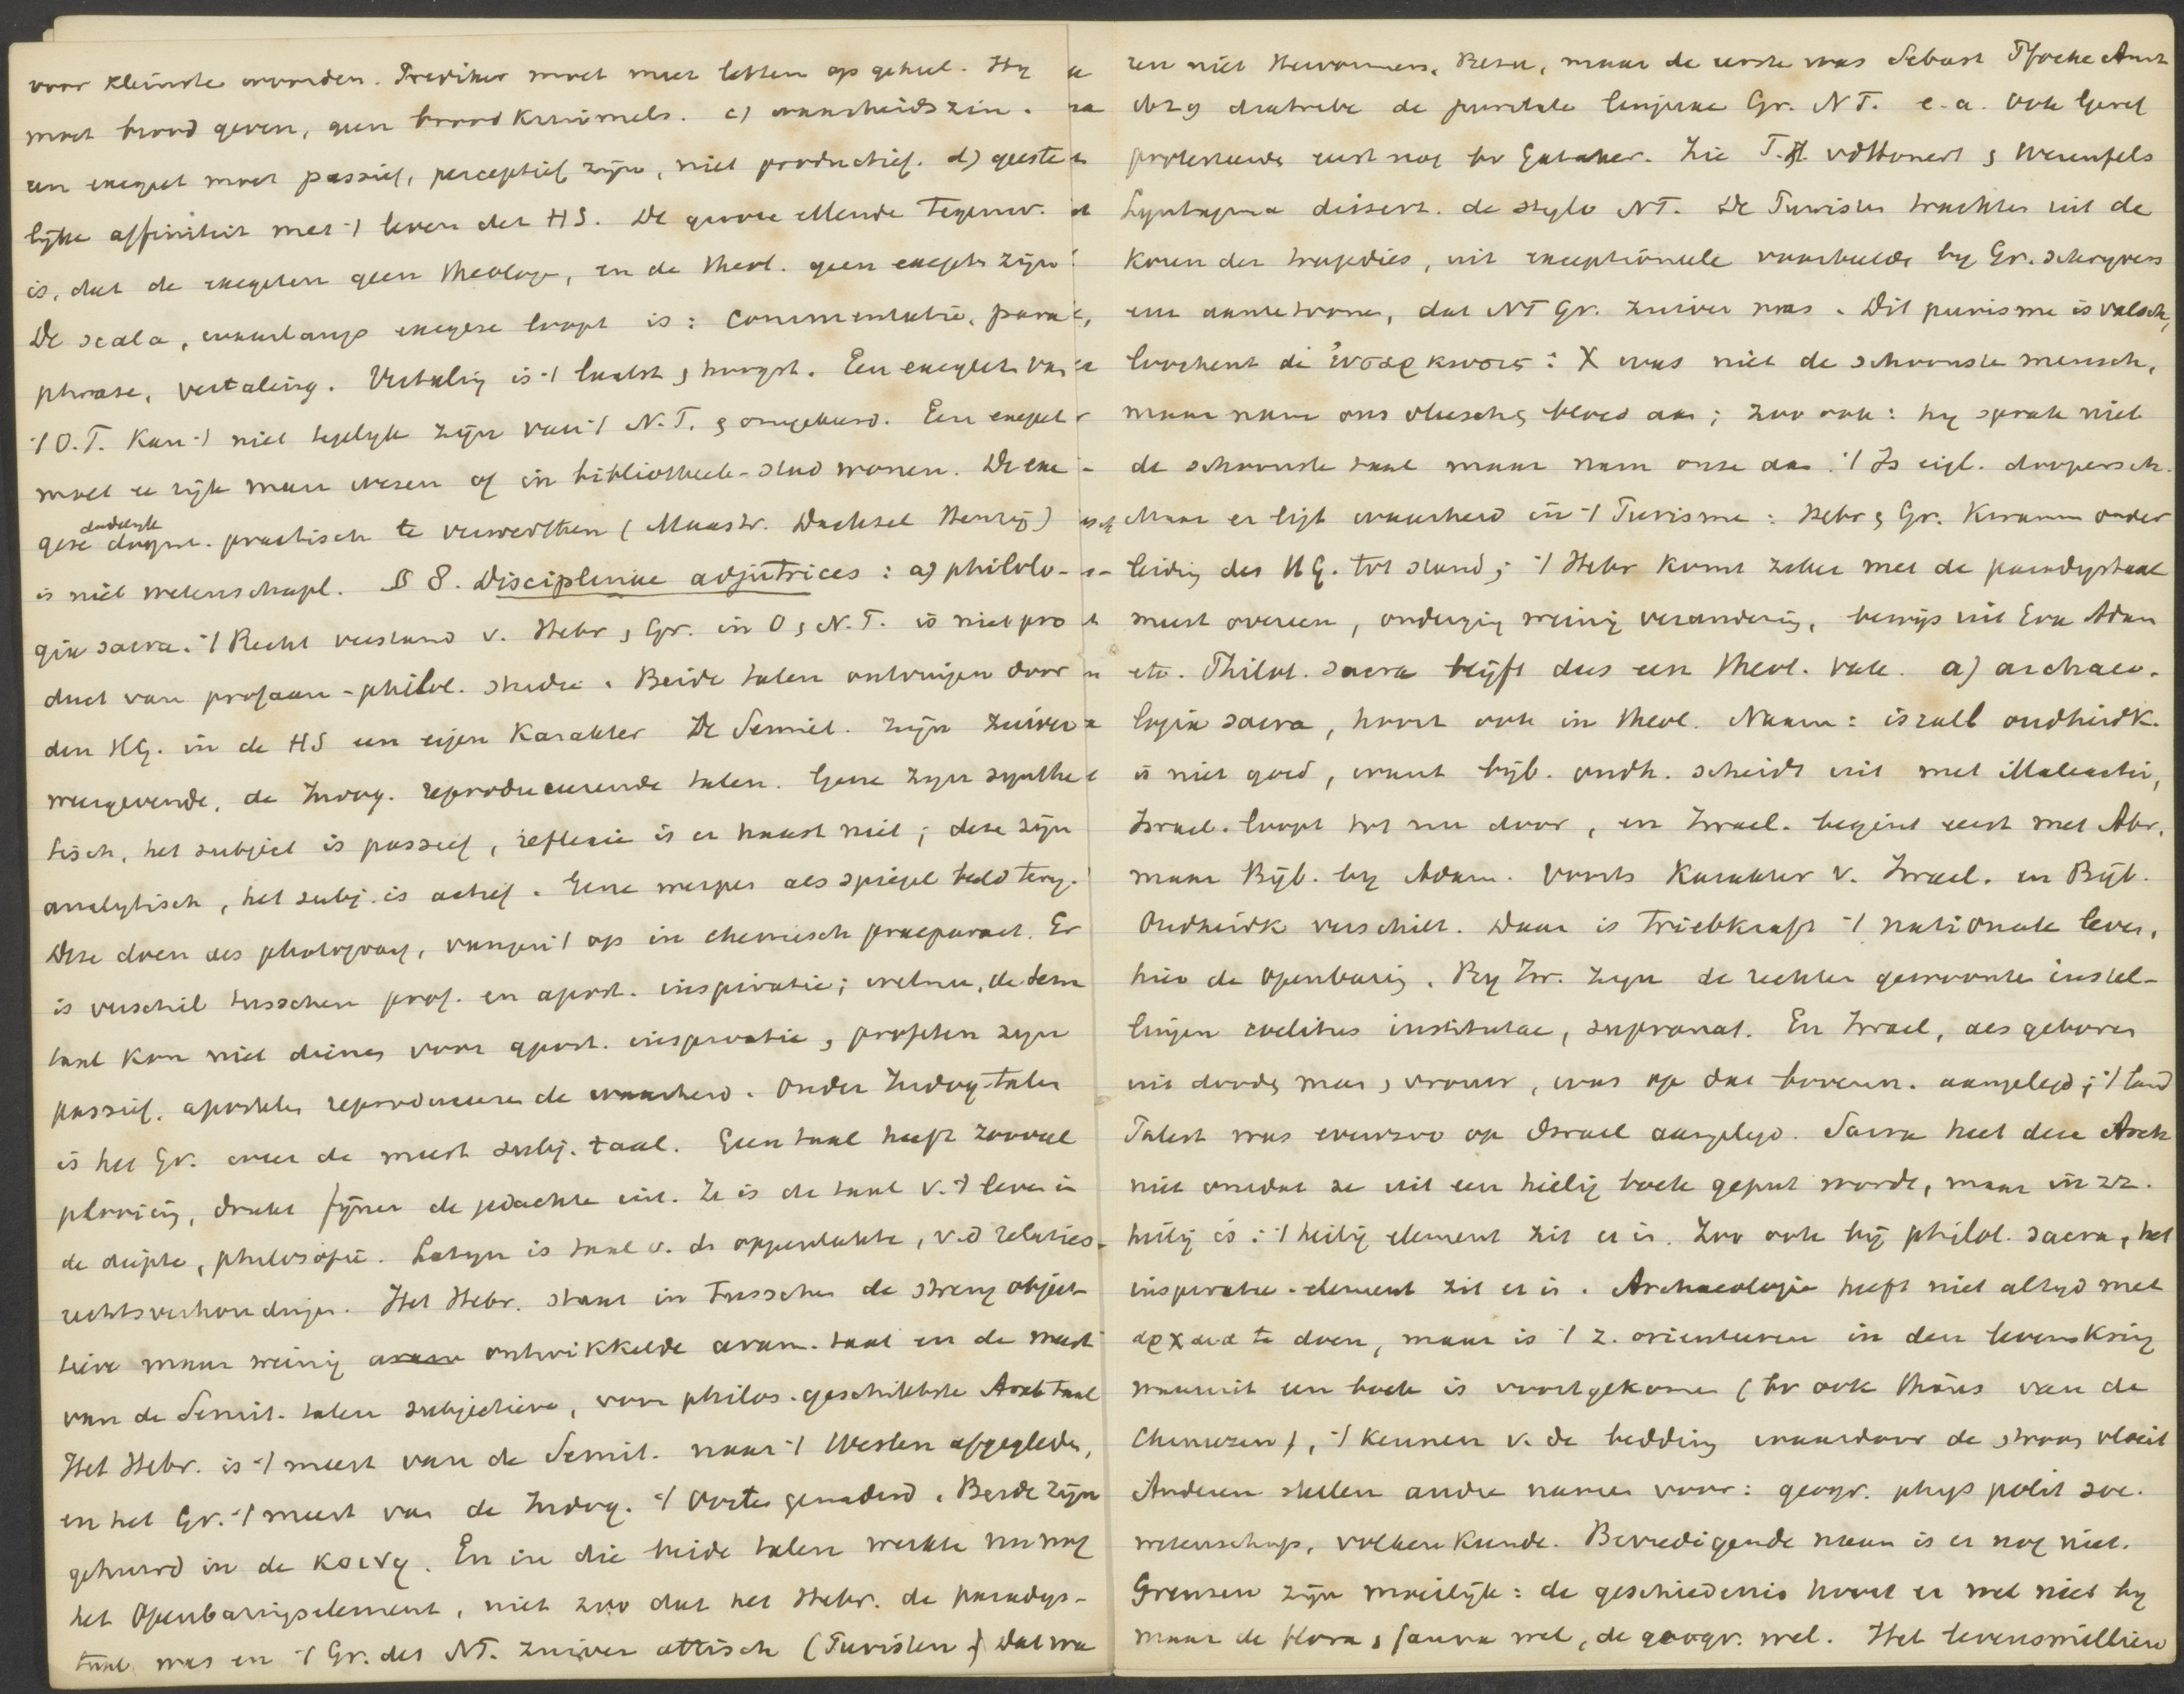 voor kleinste woorden. Prediker moet meer letten op geheel. Hy
moet brood geven, geen broodkruimels. c) waarheidszin.
een exegeet moet passief, perceptief zijn, niet productief. d) geeste
lijke affiniteit met 't leven der HS. De groote ellende tegenw.
is, dat de exegeten geen theologen, en de theol. geen exegeten zijn
De scala, waarlangs exegese loopt is: commentatie, para
phrase, vertaling. Vertaling is 't laatst & hoogst. Een exegeet van
't O.T. kan 't niet tegelyk zijn van 't N.T. & omgekeerd. Een exegeet
moet een rijk man wezen of in bibliotheek-stad wonen. De exe
gese dadelyk practisch te verwerken (Maastr. Dachsel Henry)
is niet wetenschapl. § 8. Disciplinae adjutrices: a) philolo-
gia sacra. 't Recht verstand v. Hebr & Gr. in O & N.T. is niet pro
duct van profaan-philol. studie. Beide talen ontvingen door
den HG. in de HS een eigen karakter De Semiet. zijn zuiver
weergevende, de Indog. reproduceerende talen. Gene zyn synthe
tisch, het subject is passief, reflexie is er haast niet; deze zijn
analytisch, het subj. is actief. Gene werpen als spiegel beeld terug.
Deze doen als photograaf, vangen 't op in chemisch praeparaat. Er
is verschil tusschen prof. en apost. inspiratie; welnu, de sem
taal kon niet dienen voor apost. inspiratie, profeten zyn
passief. apostelen reproduceeren de waarheid. Onder Indog-talen
is het Gr. weer de meest subj. taal. Geen taal heeft zooveel
plooiing, drukt fijner de gedachte uit. Ze is de taal v. 't leven in
de diepte, philosofie. Latyn is taal v. de oppervlakte, v.d relaties
rechtsverhoudingen. Het Hebr. staat in tusschen de streng objec-
tieve maar weinig ontwikkelde aram. taal en de meest
van de Semit. talen subjectieve, voor philos. geschiktste Arab taal
Het Hebr. is 't meest van de Semit. naar 't Westen afgegleden,
en het Gr. 't meest van de Indog. 't Oosten genaderd. Beide zijn
gehuwd in de κοινη. En in die beide talen werkte nu nog
het Openbaringselement, niet zoo dat het Hebr. de paradys-
taal was en 't Gr. des NT. zuiver attisch (Puristen) Dat wa
ren niet Stevanus, Beza, maar de eerste was Sebast Pfoche Amst
diatribe de puritate linguae Gr. NT. e.a. ook Geref
protesteerde eerst nog bv Gataker. Zie T.H. vdHonert & Werenfels
Syntagma dissert. de stylo NT. De Puristen trachten uit de
koren der tragedies, uit exceptioneele voorbeelden by Gr. schryvers
een aante toonen, dat NT Gr. zuiver was. Dit purisme is valsch,
loochent de ἐνσαρκωσις: X was niet de schoonste mensch,
maar nam ons vleesch & bloed aan; zoo ook: hy sprak niet
de schoonste taal maar nam onze aan. 't Is eigl. doopersch.
Maar er ligt waarheid in 't Purisme: Hebr & Gr. kwamen onder
leiding des HG. tot stand; 't Hebr komt zeker met de paradystaal
meest overeen, onderging weinig verandering, bewijs uit Eva Adam
etc. Philol. sacra blijft dus een theol. vak. a) archaeo-
logia sacra, hoort ook in theol. Naam: israël oudheidk.
is niet goed, want bijb. oudh. scheidt uit met Maleachi,
Israel. loopt tot nu door, en Israel. begint eerst met Abr.
maar Bijb. by Adam. Voorts karakter v. Israel. en Bijb.
Oudheidk verschilt. Daar is Triebkraft 't nationale leven,
hier de Openbaring. By Isr. zyn de rechten gewoonten instel-
lingen coelitus institutae, supranat. En Israel, als geboren
uit doode man & vrouw, was op dat bovenn. aangelegd; 't land
Palest was evenzoo op Israel aangelegd. Sacra heet deze Arch
niet omdat ze uit een heilig boek geput wordt, maar in zz.
heilig is: 't heilig element zit er in. Zoo ook bij philol. sacra, het
inspiratie-element zit er in. Archaeologie heeft niet altyd met
αρχαια te doen, maar is 't z. orienteeren in den levenskring
waaruit een boek is voortgekomen (bv ook thans van de
Chineezen), 't kennen v. de bedding waardoor de stroom vloeit
Anderen stellen andre namen voor: geogr. phys polit soc.
wetenschap, volkenkunde. Bevredigende naam is er nog niet.
Grenzen zijn moeilijk: de geschiedenis hoort er wel niet by
maar de flora & fauna wel, de geogr. wel. Het levensmillieu